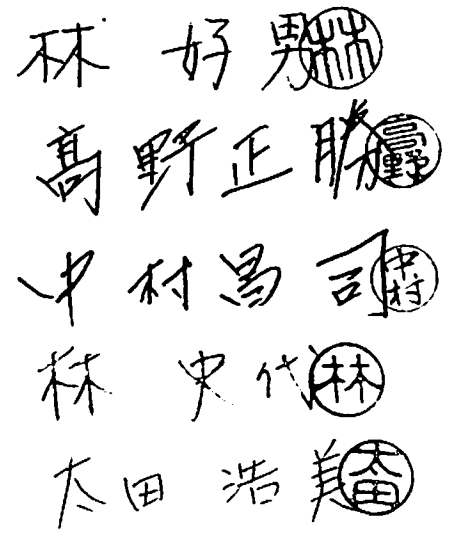 林 好男 林
髙野正勝 高野
中村昌司 中村
林 史代 林
太田 浩美 太田